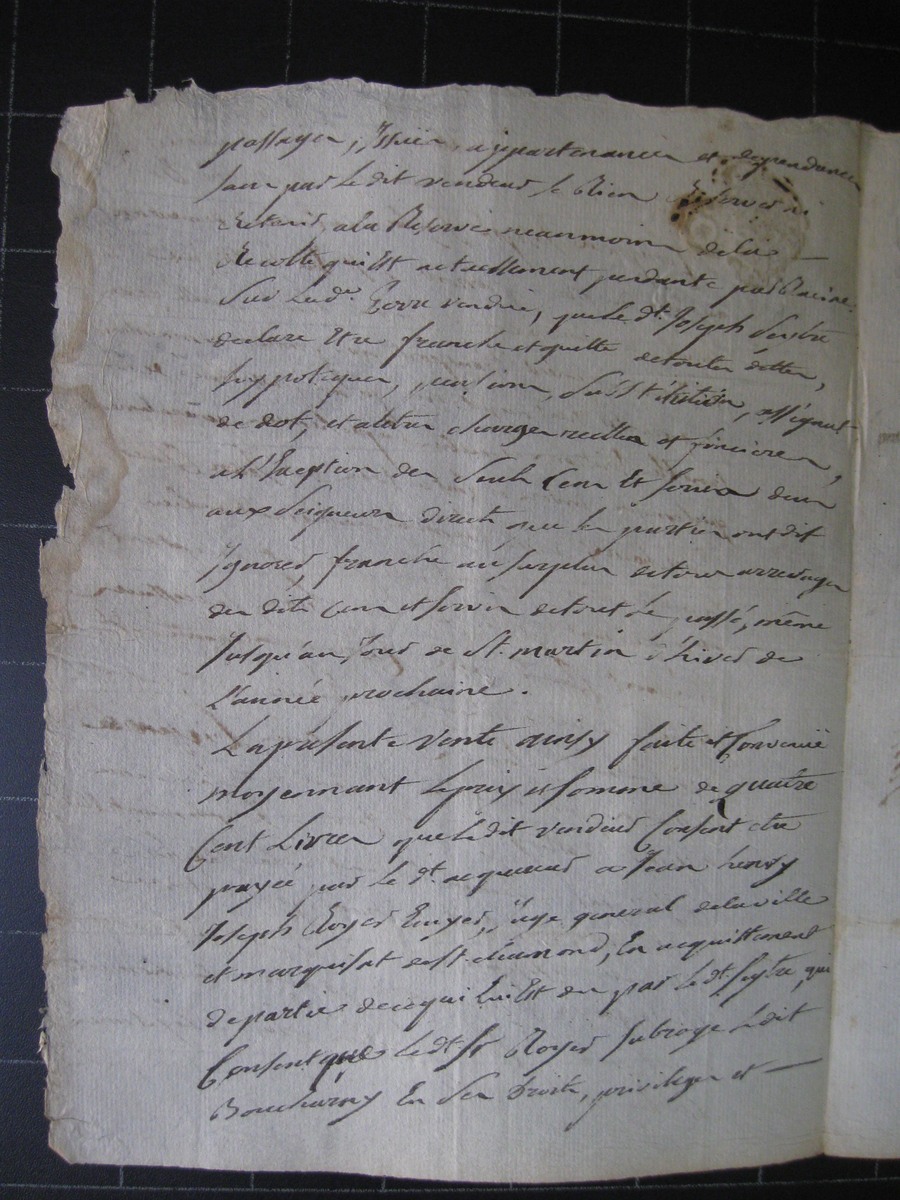 passages, Issües, appartenances et dependances
sans par le dit vendeur se Rien Reserver ni
Retenir, a la Reserve neanmoins de la
Recolte qui Est actuellement pendante par Racine
Sur lade. Terre vendüe, que le dt. Joseph
declare Etre franche et quitte de toutes dettes,
hypoteques, pension, Substitution, assignal
de dot, et autres charges reelles et foncieres
a L'Exception des Seuls Cens Et servis deüs
aux Seigneurs directs que les parties ont dit
Ignorer, franche au surplus de tous arrerages
des dits Cens et servis de tout le passé, même
Jusqu'au Jour de St. martin d'hiver de
L'année prochaine.
La presente vente ainsy faite et Convenüe
moyennant Le prix et somme de quatre
Cent Livres que le dit vendeur Consent etre
payée par le dt. acquereur a Jean henry
Joseph Royer Ecuyer, Juge general de la ville
et marquisat de St. chamond, En acquittement
de partie de ce qui lui Est du par le dt. , qui
Consent que le dt. Sr. Royer subroge Ledit
Boucharny En Ses Droits, privileges et